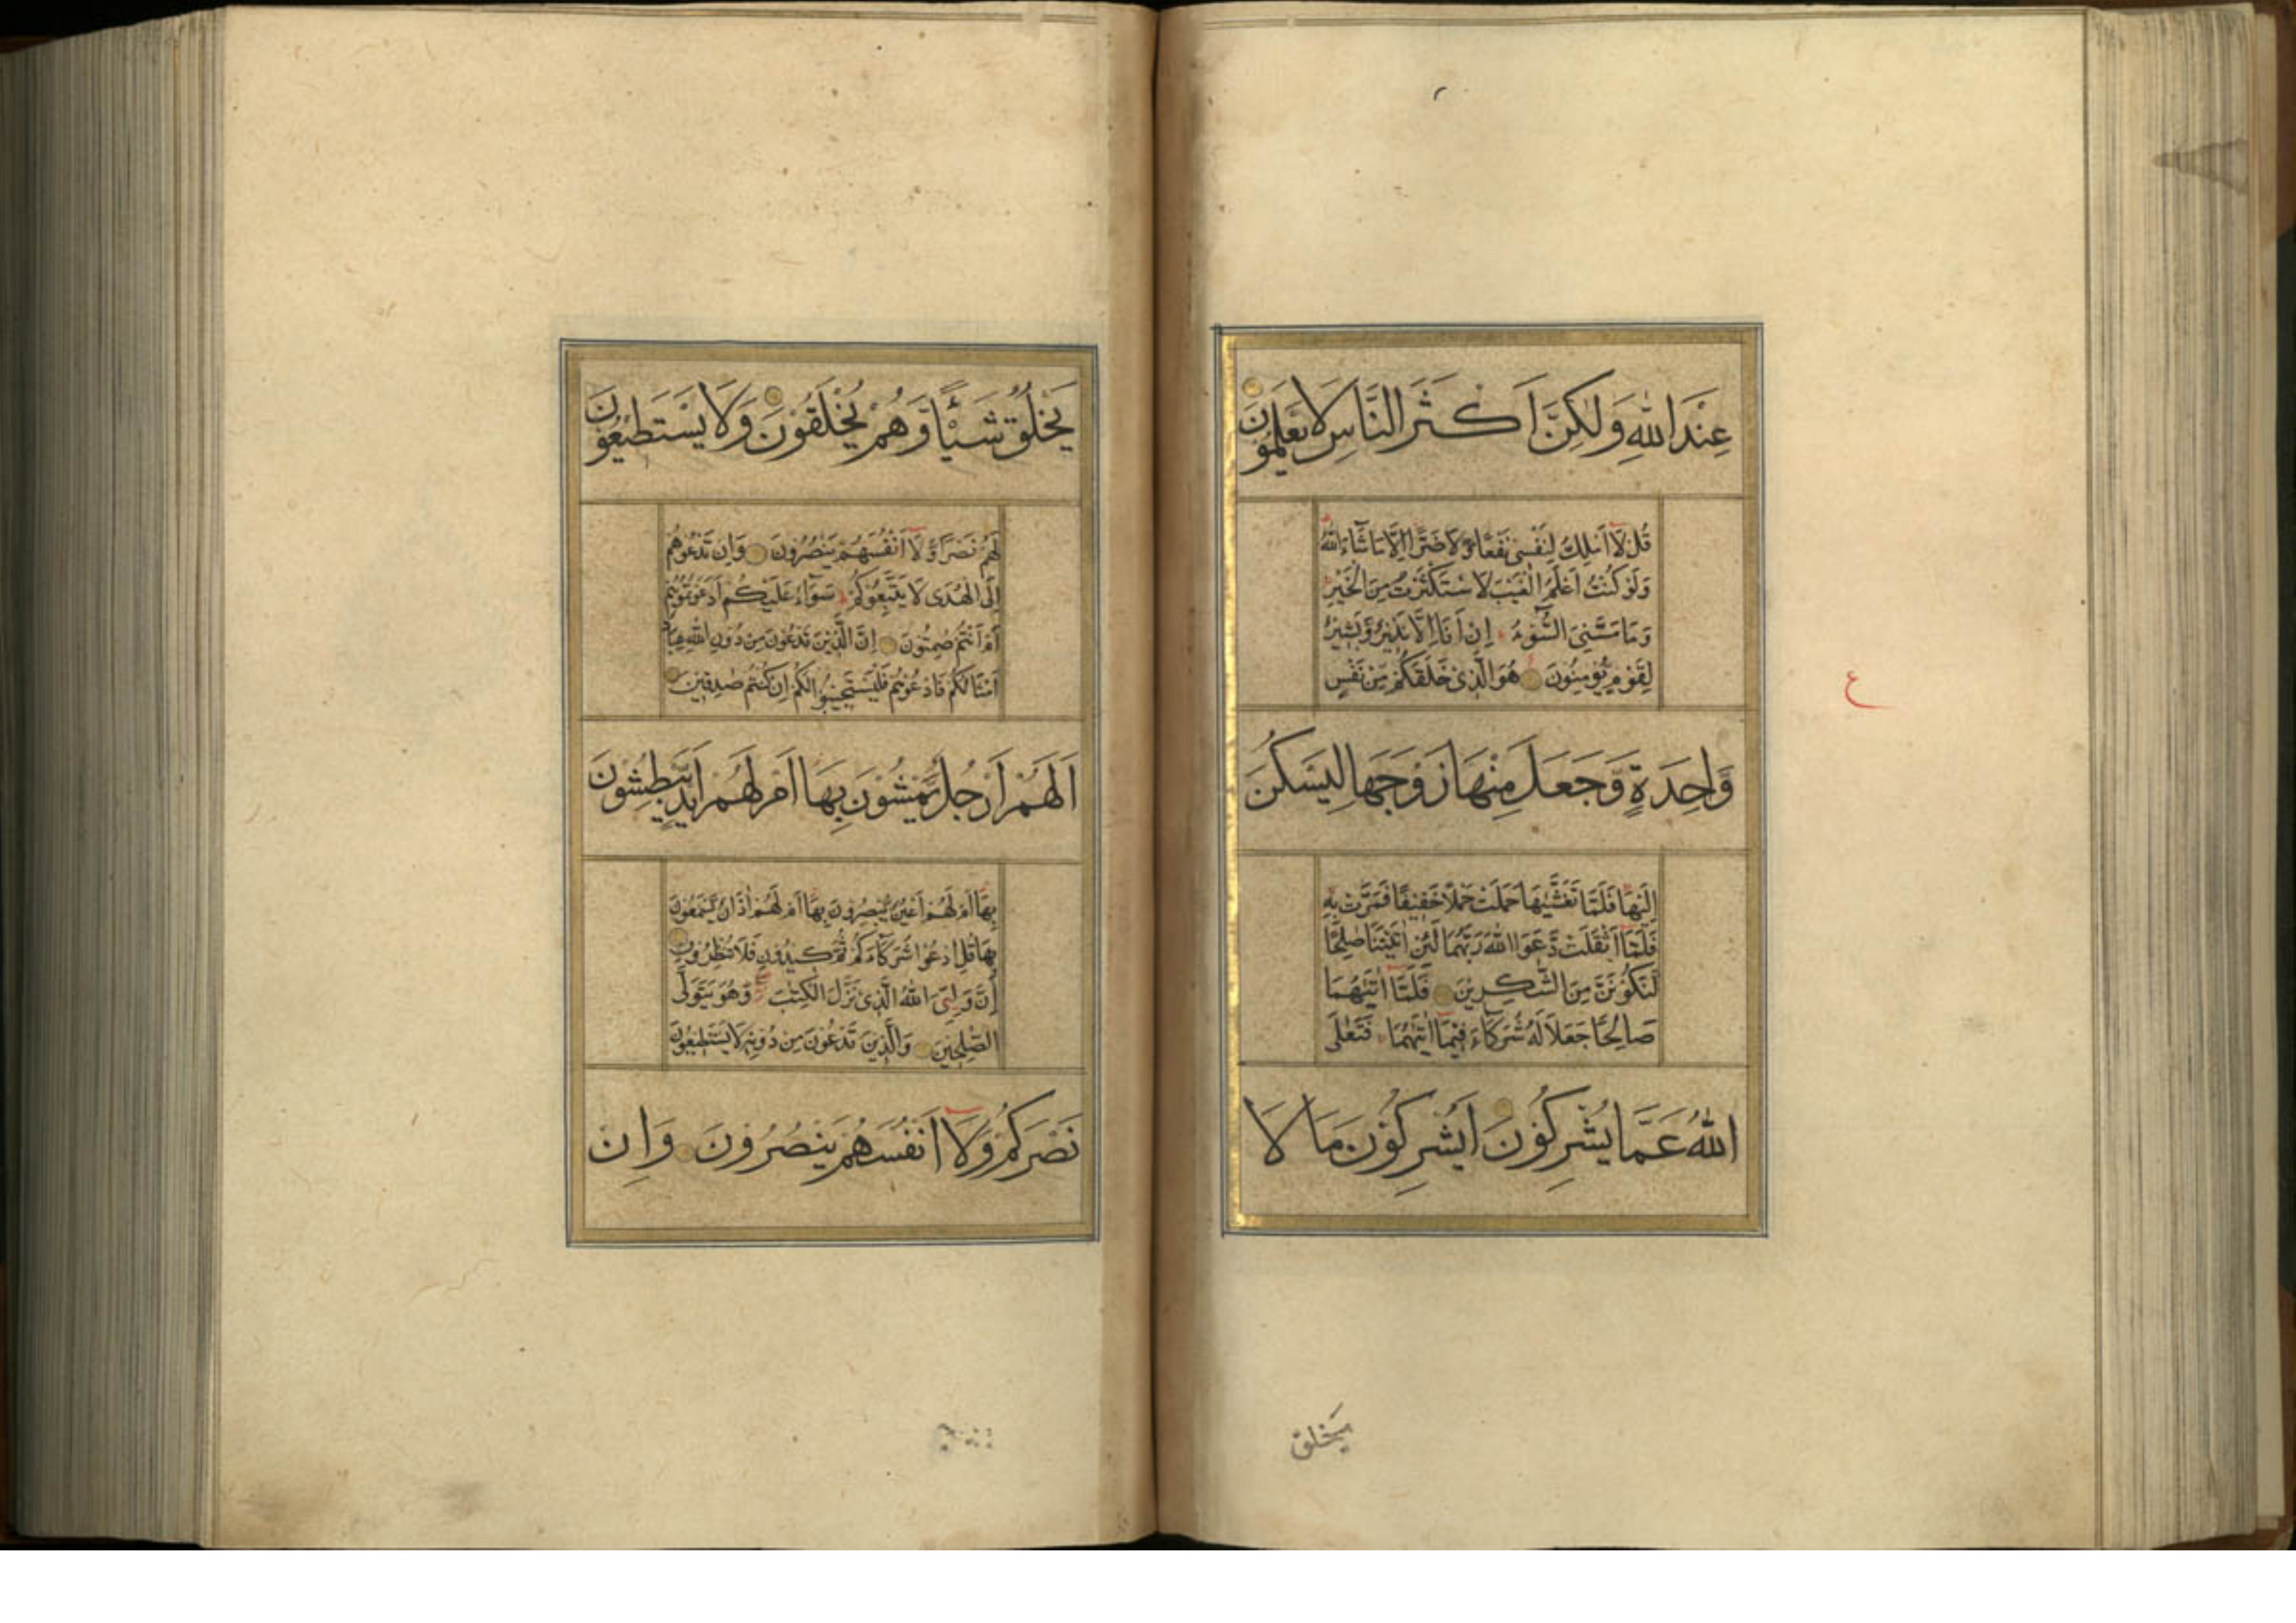 عِنْدَ اللّٰهِ وَلٰكِنَّ اَكْثَرَ النَّاسِ لَا يَعْلَمُوْنَ
قُلْ لَا اَمْلِكُ لِنَفْسِىْ نَفْعًا وَّلَا ضَرًّا اِلَّا مَا شَاءَ اللّٰهُ
وَلَوْ كُنْتُ اَعْلَمُ الْغَيْبَ لَاسْتَكْثَرْتُ مِنَ الْخَيْرِ
وَمَا مَسَّنِىَ السُّوْءُ اِنْ اَنَا اِلَّا نَذِيْرٌ وَّبَشِيْرٌ
لِقَوْمٍ يُّؤْمِنُوْنَ هُوَ الَّذِىْ خَلَقَكُمْ مِّنْ نَّفْسٍ
وَّاحِدَةٍ وَّجَعَلَ مِنْهَا زَوْجَهَا لِيَسْكُنَ
اِلَيْهَا فَلَمَّا تَغَشّٰيهَا حَمَلَتْ حَمْلًا خَفِيْفًا فَمَرَّتْ بِهٖ
فَلَمَّا اَثْقَلَتْ دَّعَوَا اللّٰهَ رَبَّهُمَا لَئِنْ اٰتَيْتَنَا صٰلِحًا
لَنَكُوْنَنَّ مِنَ الشّٰكِرِيْنَ فَلَمَّا اٰتٰيهُمَا
صَالِحًا جَعَلَا لَهُ شُرَكَاءَ فِيْمَا اٰتٰيهُمَا فَتَعٰلَى
اللّٰهُ عَمَّا يُشْرِكُوْنَ اَيُشْرِكُوْنَ مَا لَا
ع
يَخْلُق
يَخْلُقُ شَيْئًا وَّهُمْ يُخْلَقُوْنَ وَلَا يَسْتَطِيْعُوْنَ
لَهُمْ نَصْرًا وَّلَا اَنْفُسَهُمْ يَنْصُرُوْنَ وَاِنْ تَدْعُوْهُمْ
اِلَى الْهُدٰى لَا يَتَّبِعُوْكُمْ سَوَاءٌ عَلَيْكُمْ اَدَعَوْتُمُوْهُمْ
اَمْ اَنْتُمْ صٰمِتُوْنَ اِنَّ الَّذِيْنَ تَدْعُوْنَ مِنْ دُوْنِ اللّٰهِ عِبَادٌ
اَمْثَالُكُمْ فَادْعُوْهُمْ فَلْيَسْتَجِيْبُوْا لَكُمْ اِنْ كُنْتُمْ صٰدِقِيْنَ
اَلَهُمْ اَرْجُلٌ يَّمْشُوْنَ بِهَا اَمْ لَهُمْ اَيْدٍ يَّبْطِشُوْنَ
بِهَا اَمْ لَهُمْ اَعْيُنٌ يُّبْصِرُوْنَ بِهَا اَمْ لَهُمْ اٰذَانٌ يَّسْمَعُوْنَ
بِهَا قُلِ ادْعُوْا شُرَكَاءَكُمْ ثُمَّ كِيْدُوْنِ فَلَا تُنْظِرُوْنِ
اِنَّ وَلِيِّىَ اللّٰهُ الَّذِىْ نَزَّلَ الْكِتٰبَ وَهُوَ يَتَوَلَّى
الصّٰلِحِيْنَ وَالَّذِيْنَ تَدْعُوْنَ مِنْ دُوْنِهٖ لَا يَسْتَطِيْعُوْنَ
نَصْرَكُمْ وَلَا اَنْفُسَهُمْ يَنْصُرُوْنَ وَاِنْ